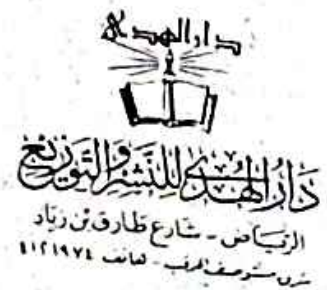 دار الهدى
دار الهدى للنشر والتوزيع
الرياض - شارع طارق بن زياد
هاتف ٤١٢١٩٧٤